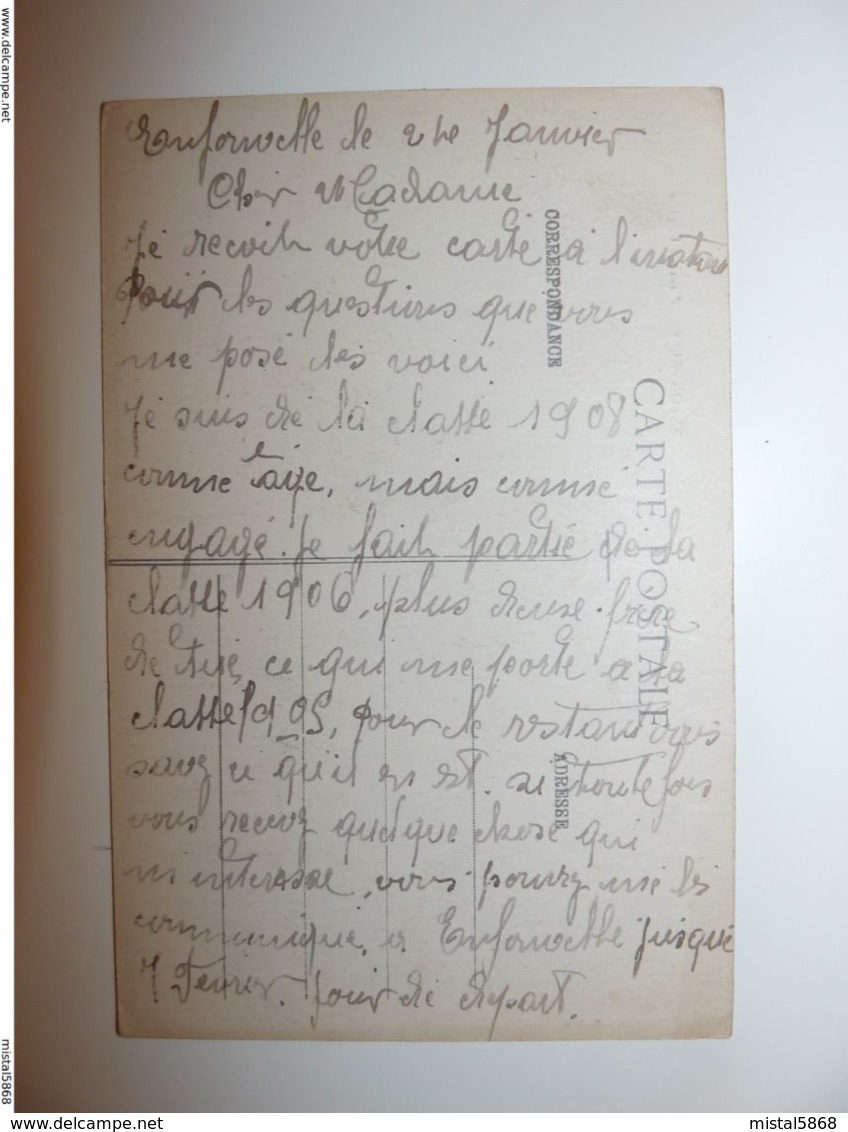 Enfonvelle le 24e Janvier
Cher Madame
Je recoih votre carte à l'instan
Pour les questions que vous
me posé les voici
Je suis de la classe 1908
comme âge, mais comme
engagé. Je faih partie de la
classe 1906, plus deuse frère
de tué, ce qui me porte a la
classe 1905, pour le restant vous
savez ce qu'il en est. si toutefois
vous recevez quelque chose qui
m'interesse, vous pouvez me les
communiqué a Enfonvelle jusque
7 Fevrier. jour de depart.
CORRESPONDANCE
CARTE POSTALE
ADRESSE
www.delcampe.net
mistal5868
www.delcampe.net
mistal5868